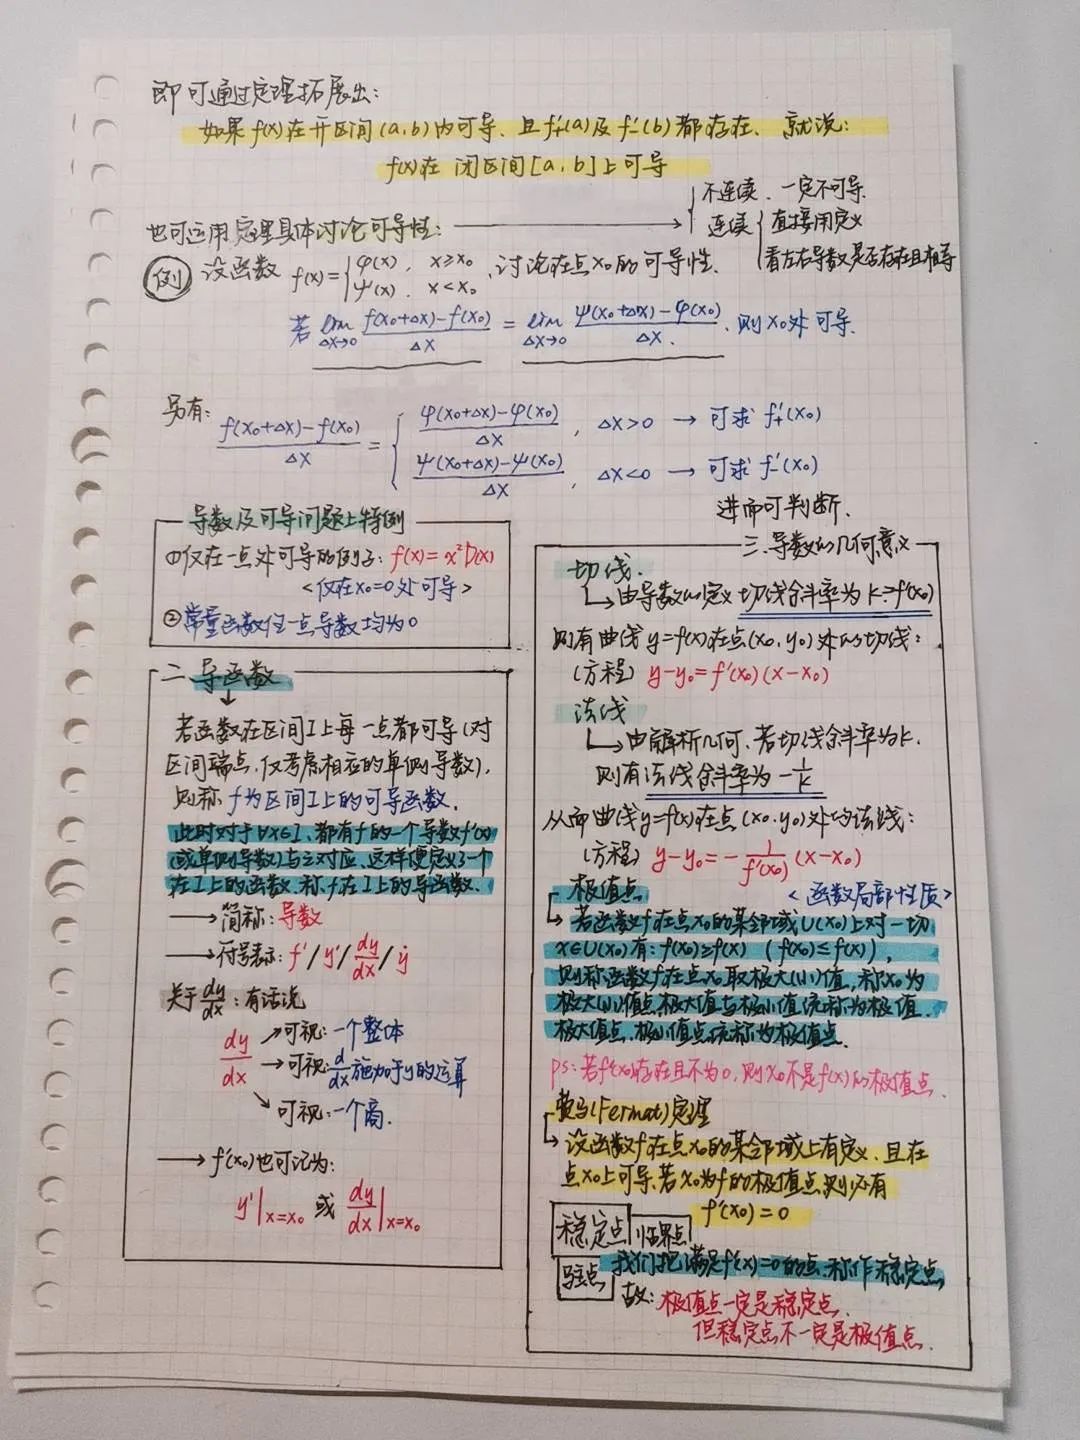 即可通过定理拓展出：
如果f(x)在开区间(a,b)内可导、且f'₊(a)及f'₋(b)都存在、就说：
f(x)在闭区间[a,b]上可导
也可运用定理具体讨论可导性： → { 不连续、一定不可导.
连续 { 直接用定义
看左右导数是否存在且相等
例 设函数 f(x)={ φ(x), x≥x₀
ψ(x), x<x₀ ,讨论在点x₀的可导性.
若 lim Δx→0 (f(x₀+Δx)-f(x₀))/Δx = lim Δx→0 (ψ(x₀+Δx)-φ(x₀))/Δx. 则x₀处可导.
另有: (f(x₀+Δx)-f(x₀))/Δx = { (φ(x₀+Δx)-φ(x₀))/Δx , Δx>0 → 可求f'₊(x₀)
(ψ(x₀+Δx)-ψ(x₀))/Δx , Δx<0 → 可求f'₋(x₀)
进而可判断.
导数及可导问题上特例
①仅在一点处可导的例子: f(x)=x²D(x)
<仅在x₀=0处可导>
②常量函数任一点导数均为0
二.导函数
↓
若函数在区间I上每一点都可导(对
区间端点,仅考虑相应的单侧导数),
则称f为区间I上的可导函数.
此时对于∀x∈I、都有f的一个导数f'(x)
(或单侧导数)与之对应、这样便定义了一个
在I上的函数.称f在I上的导函数.
→简称:导数
→符号表示: f'/y'/dy/dx/ẏ
关于dy/dx:有话说
dy/dx →可视:一个整体
→可视:d/dx施加于y的运算
↘可视:一个商.
→f'(x₀)也可记为:
y'|x=x₀ 或 dy/dx|x=x₀
三.导数的几何意义
切线.
↳由导数的定义 切线斜率为k=f'(x₀)
则有曲线y=f(x)在点(x₀,y₀)处的切线:
(方程) y-y₀=f'(x₀)(x-x₀)
法线
↳由解析几何、若切线斜率为k.
则有法线斜率为-1/k
从而曲线y=f(x)在点(x₀,y₀)处的法线:
(方程) y-y₀=-1/f'(x₀)(x-x₀)
极值点 <函数局部性质>
↳若函数f在点x₀的某邻域U(x₀)上对一切
x∈U(x₀)有:f(x₀)≥f(x) (f(x₀)≤f(x)),
则称函数f在点x₀取极大(小)值,称x₀为
极大(小)值点.极大值与极小值统称为极值.
极大值点、极小值点统称为极值点.
ps:若f'(x₀)存在且不为0,则x₀不是f(x)的极值点.
费马(Fermat)定理
↳设函数f在点x₀的某邻域上有定义、且在
点x₀上可导.若x₀为f的极值点,则必有
f'(x₀)=0
稳定点 临界点
驻点 我们把满足f'(x)=0的点.称作稳定点,
故:极值点一定是稳定点.
但稳定点不一定是极值点.